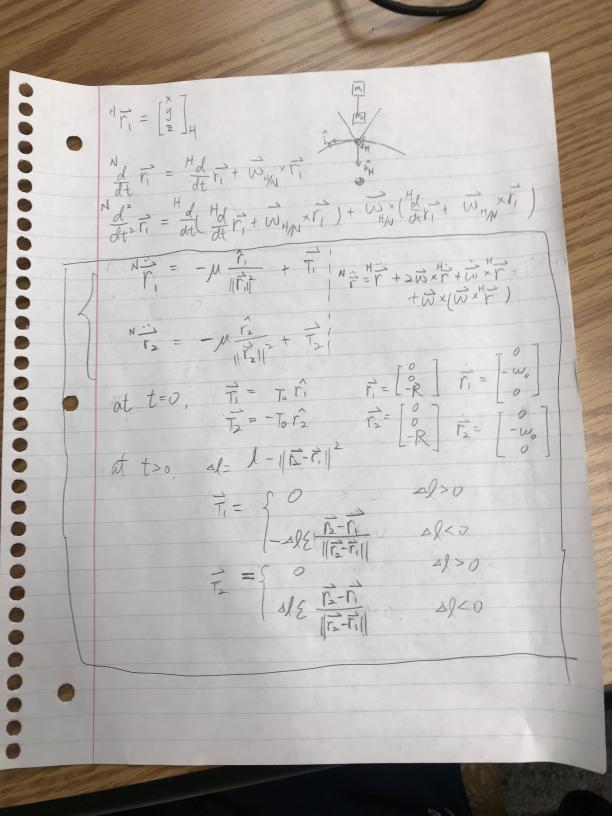 ᴴr⃗₁ = [x y z]_H
m₁
î_H
k̂_H
ᴺd/dt r⃗₁ = ᴴd/dt r⃗₁ + ω⃗_H/N × r⃗₁
ᴺd²/dt² r⃗₁ = ᴴd/dt (ᴴd/dt r⃗₁ + ω⃗_H/N × r⃗₁) + ω⃗_H/N × (ᴴd/dt r⃗₁ + ω⃗_H/N × r⃗₁)
ᴺr̈⃗₁ = -μ r̂₁/||r⃗₁||² + T⃗₁
ᴺr̈ = ᴴr̈ + 2ω⃗ × ᴴṙ + ω̇⃗ × ᴴr⃗
+ ω⃗ × (ω⃗ × ᴴr⃗)
ᴺr̈⃗₂ = -μ r̂₂/||r⃗₂||² + T⃗₂
at t=0, T⃗₁ = T₀ r̂₁ r⃗₁ = [0 0 -R] ṙ⃗₁ = [0 -ω₀ 0]
T⃗₂ = -T₀ r̂₂ r⃗₂ = [0 0 -R] ṙ⃗₂ = [0 -ω₀ 0]
at t>0, Δl = l - ||r⃗₂-r⃗₁||²
T⃗₁ = { 0 Δl>0
-Δlξ r⃗₂-r⃗₁/||r⃗₂-r⃗₁|| Δl<0
T⃗₂ = { 0 Δl>0
Δlξ r⃗₂-r⃗₁/||r⃗₂-r⃗₁|| Δl<0